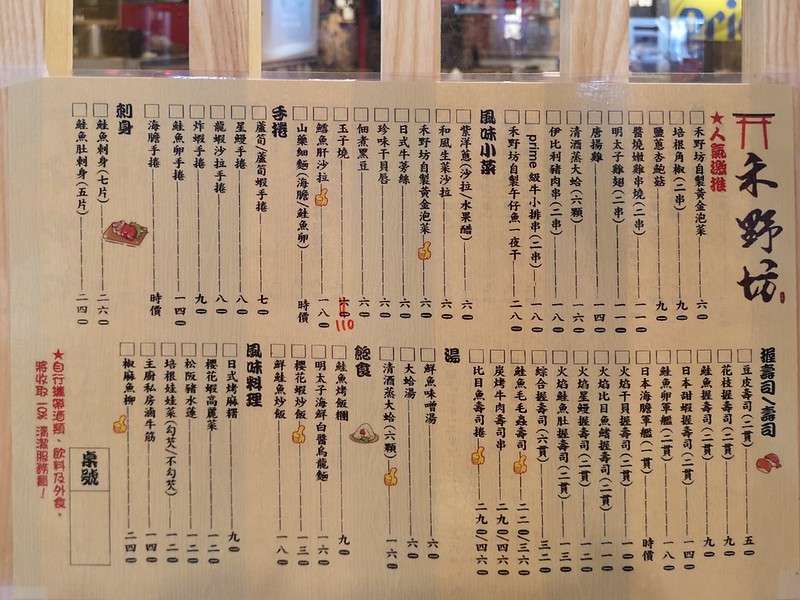 禾野坊
★人氣激推
禾野坊自製黃金泡菜 六〇
培根角椒(二串) 九〇
鹽蔥杏鮑菇 九〇
醫燒嫩雞串燒(二串) 一一〇
明太子雞翅(二串) 一一〇
唐揚雞 一四〇
清酒蒸大蛤(六顆) 一六〇
伊比利豬肉串(二串) 一八〇
prime級牛小排串(二串) 一八〇
禾野坊自製午仔魚一夜干 二八〇
風味小菜
紫洋蔥(沙拉/水果醋) 六〇
和風生菜沙拉 六〇
禾野坊自製黃金泡菜 六〇
日式牛蒡絲 六〇
珍味干貝唇 六〇
佃煮黑豆 六〇
玉子燒 110
鱈魚肝沙拉 一八〇
山藥細麵(海膽/鮭魚卵) 時價
手捲
蘆筍/蘆筍蝦手捲 七〇
星鰻手捲 八〇
龍蝦沙拉手捲 八〇
炸蝦手捲 九〇
鮭魚卵手捲 一四〇
海膽手捲 時價
刺身
鮭魚刺身(七片) 二六〇
鮭魚肚刺身(五片) 二四〇
握壽司/壽司
豆皮壽司(二貫) 五〇
花枝握壽司(二貫) 九〇
鮭魚握壽司(二貫) 九〇
日本甜蝦握壽司(二貫) 一四〇
鮭魚卵軍艦(二貫) 一八〇
日本海膽軍艦(一貫) 時價
火焰干貝握壽司(二貫) 一一〇
火焰比目魚鰭握壽司(二貫) 一一〇
火焰星鰻握壽司(二貫) 一二〇
火焰鮭魚肚握壽司(二貫) 一三〇
綜合握壽司(六貫) 三二〇
鮭魚毛毛蟲壽司 二二〇/三六〇
炭烤牛肉壽司串 二九〇/四六〇
比目魚壽司捲 二九〇/四六〇
湯
鮮魚味噌湯 六〇
大蛤湯 六〇
清酒蒸大蛤(六顆) 一六〇
飽食
鮭魚烤飯糰 九〇
明太子海鮮白醬烏龍麵 一六〇
櫻花蝦炒飯 一三〇
鮮鮭魚炒飯 一八〇
風味料理
日式烤麻糬 九〇
櫻花蝦高麗菜 一二〇
松阪豬水蓮 一二〇
培根娃娃菜(勾芡/不勾芡) 一二〇
主廚私房滷牛筋 一四〇
椒麻魚柳 二四〇
桌號
★自行攜帶酒類、飲料及外食,
將收取一定清潔服務費!